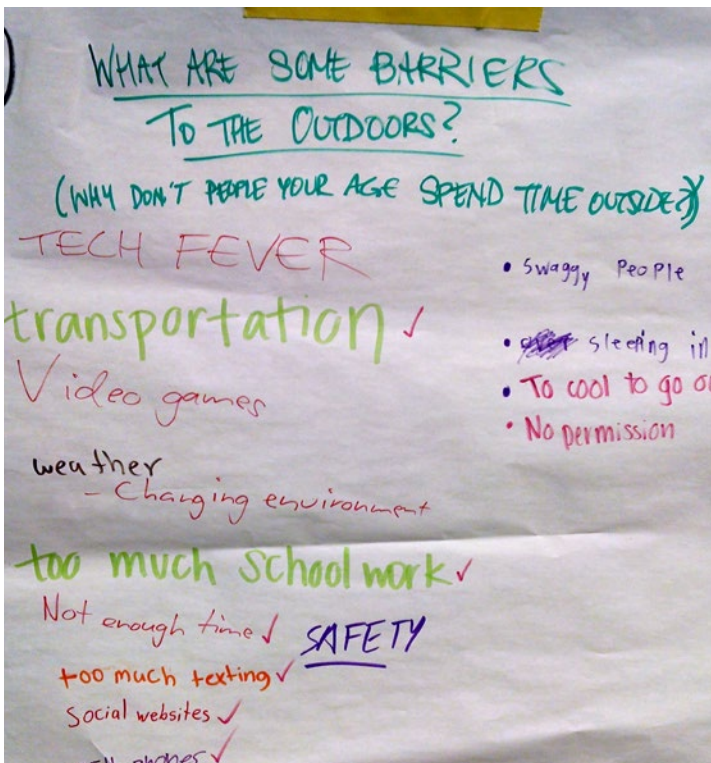 WHAT ARE SOME BARRIERS
TO THE OUTDOORS?
(WHY DON'T PEOPLE YOUR AGE SPEND TIME OUTSIDE?)
TECH FEVER
transportation ✓
Video games
weather
- Changing environment
too much school work ✓
Not enough time ✓
SAFETY
too much texting ✓
Social websites ✓
phones ✓
• Swaggy People
• sleeping in
• To cool to go
• No permission